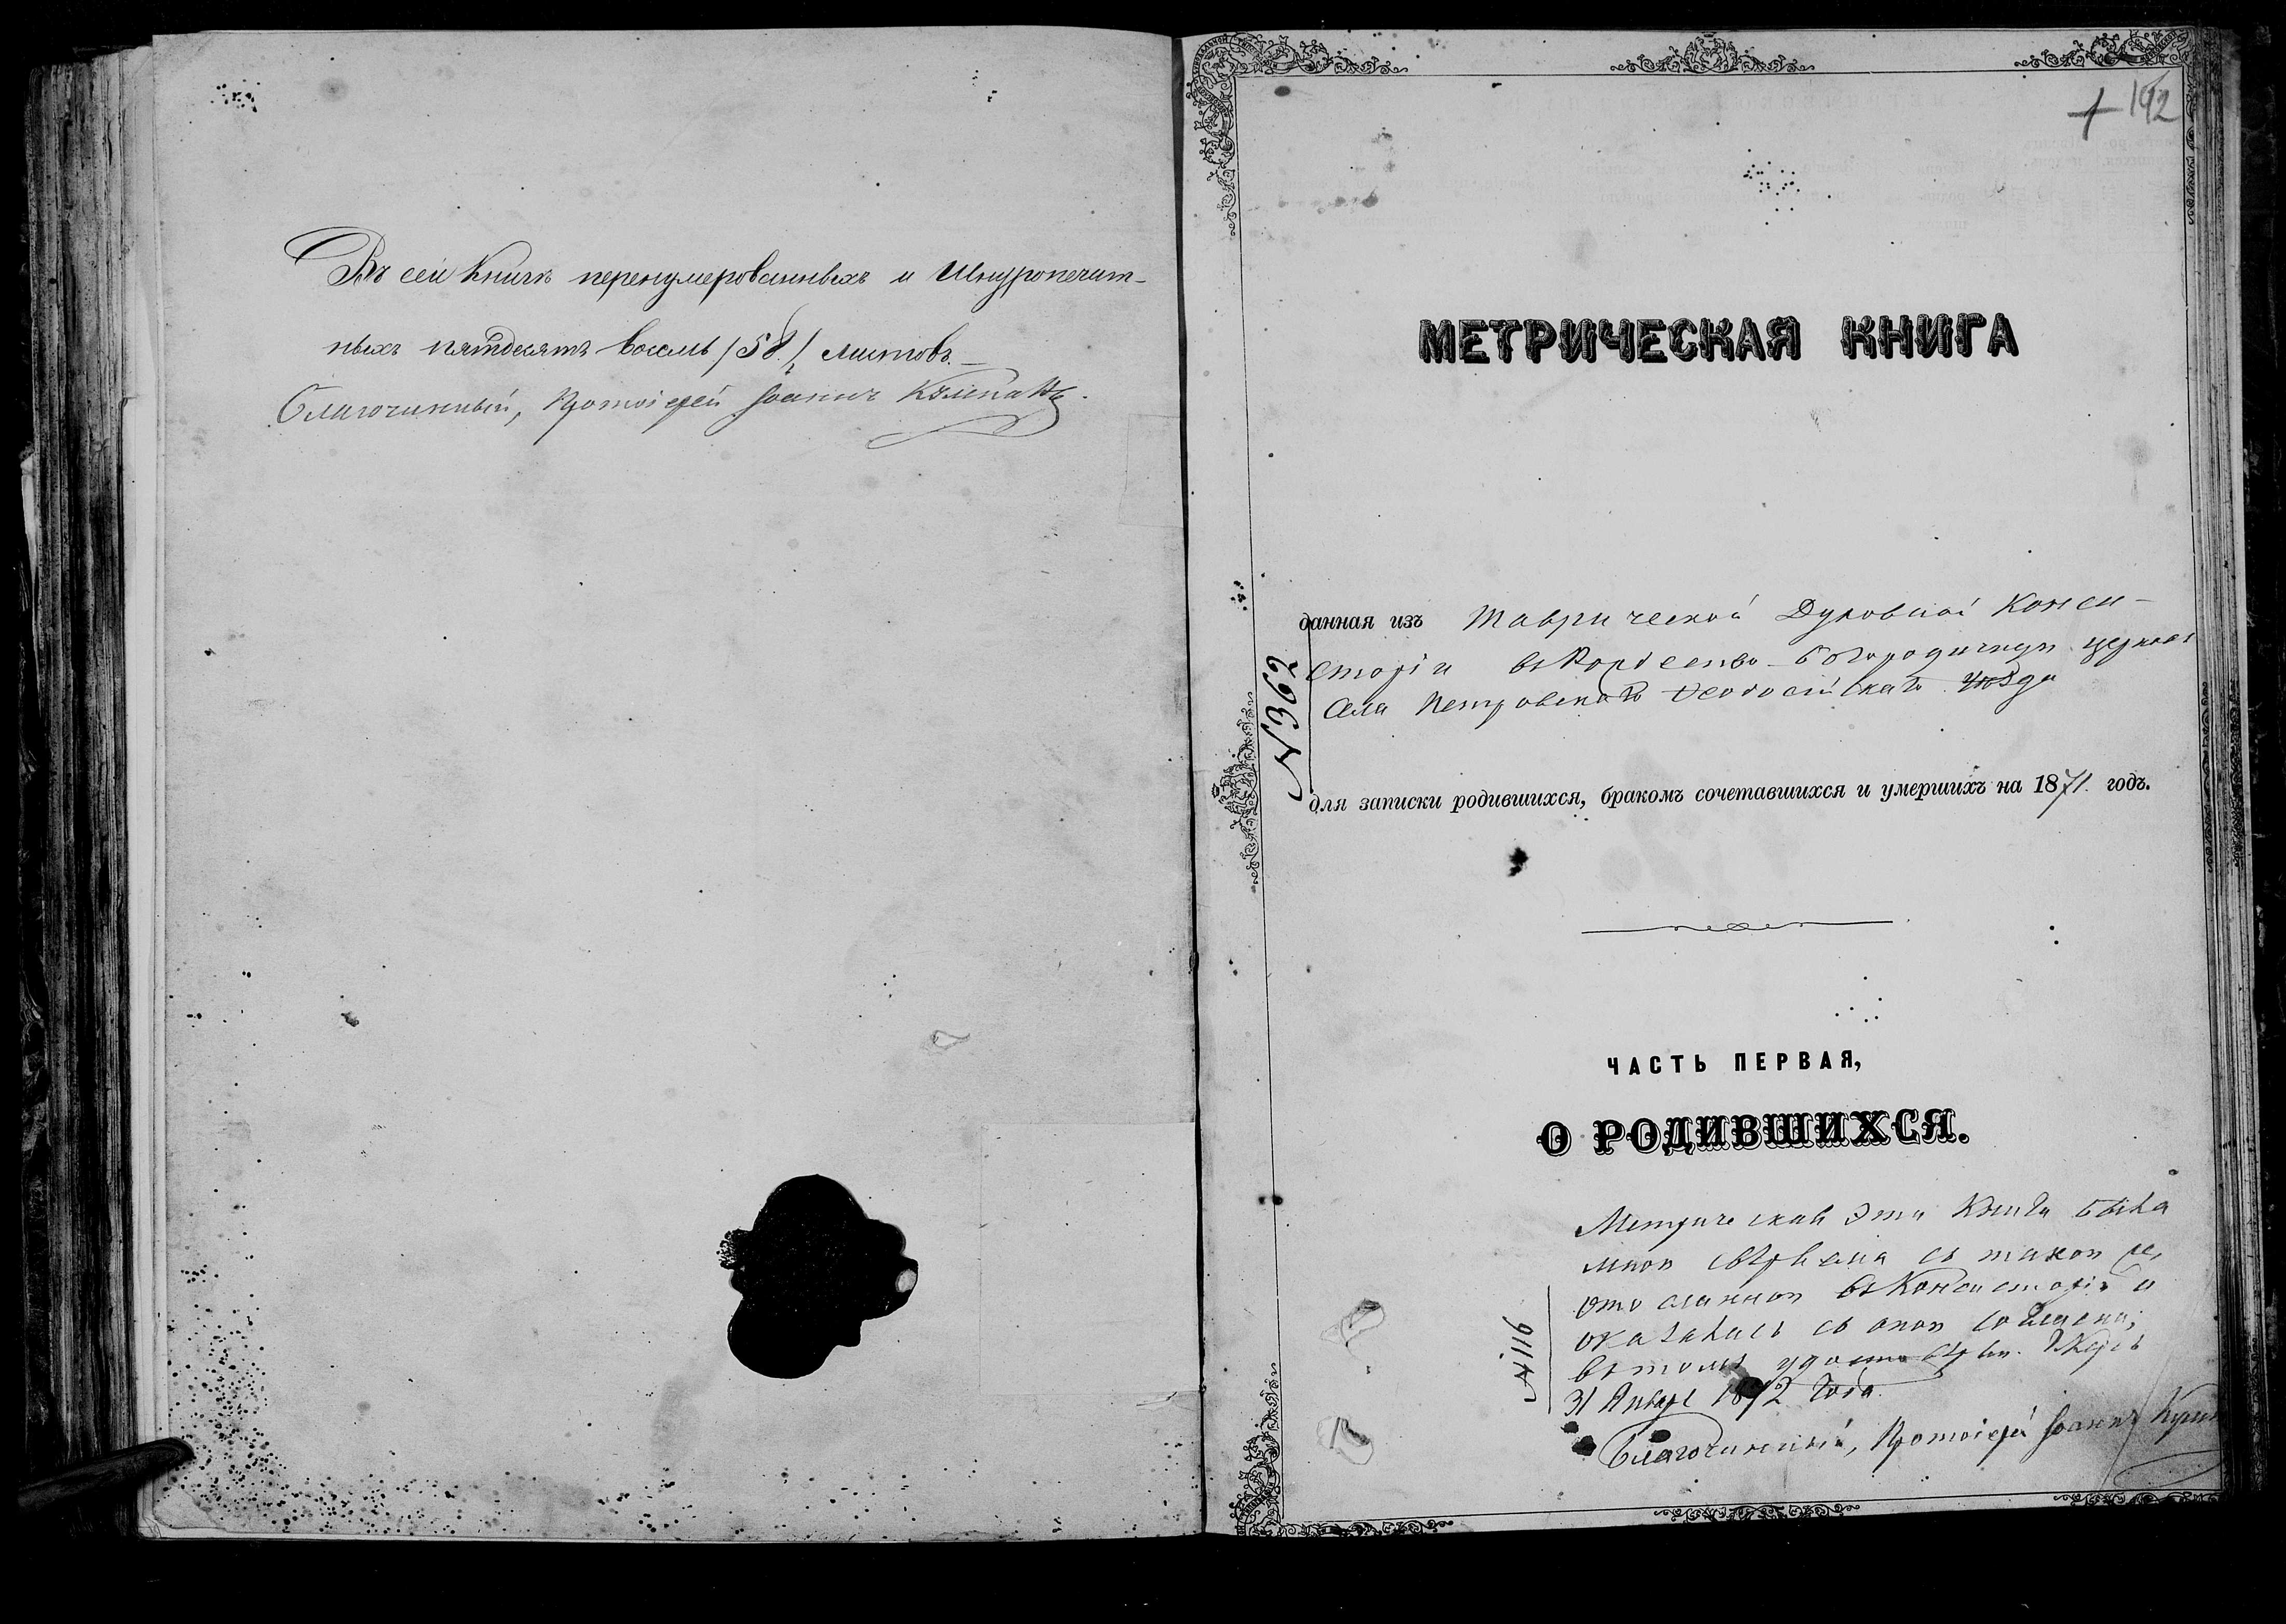 Въ сей Книгѣ перенумерованныхъ и Шнуропечат-
ныхъ пятдесятъ восемь /58./ листовъ.
Благочинный, Протоіерей Іоаннъ
192
МЕТРИЧЕСКАЯ КНИГА
данная изъ Таврической Духовной Конси-
сторіи въ Рождество-Богородичную церковь
Села Петровскаго Ѳеодосійскаго уѣзда
№362
для записки родившихся, бракомъ сочетавшихся и умершихъ на 1871. годъ.
ЧАСТЬ ПЕРВАЯ,
О РОДИВШИХСЯ.
Метрическая эта Книга была
мною свѣряема съ такою же,
отосланною въ Консисторію и
оказалась съ оною согласна,
въ томъ удостовѣряю.
31 Января 1872 года.
№116
Благочинный, Протоіерей Іоаннъ